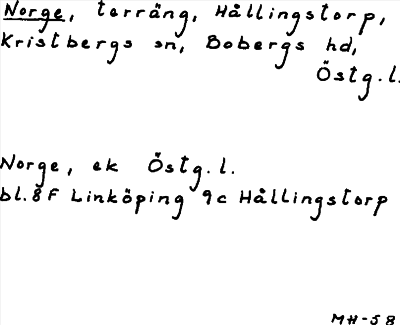 Norge, terräng, Hållingstorp,
Kristbergs sn, Bobergs hd,
Östg.l.
Norge, ek Östg.l.
bl.8F Linköping 9c Hållingstorp
MH-58